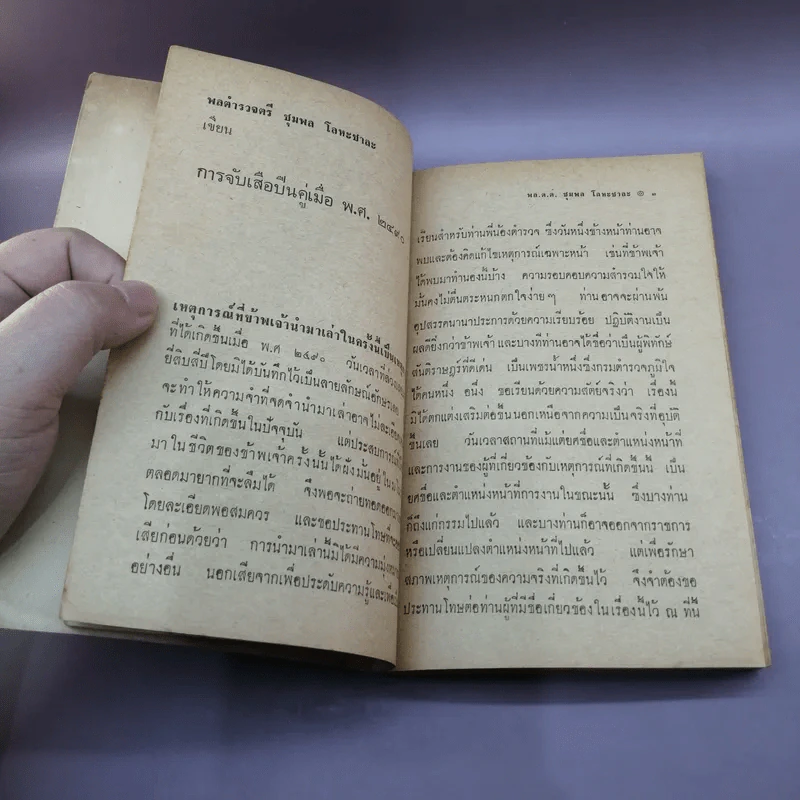 พลตำรวจตรี ชุมพล โลหะชาละ
เขียน
การจับเสือปืนคู่เมื่อ พ.ศ. ๒๔๙๐
เหตุการณ์ที่ข้าพเจ้านำมาเล่าในครั้งนี้เป็น
ที่ได้เกิดขึ้นเมื่อ พ.ศ ๒๔๙๐ วันเวลาที่ล่วง
ยี่สิบสี่ปีโดยมิได้บันทึกไว้เป็นลายลักษณ์อักษรเลย
จะทำให้ความจำที่จดจำนำมาเล่าอาจไม่ละเอียด
กับเรื่องที่เกิดขึ้นในปัจจุบัน แต่ประสบการณ์
มาในชีวิตของข้าพเจ้าครั้งนั้นได้ฝังมั่นอยู่ใน
ตลอดมายากที่จะลืมได้ จึงพอจะถ่ายทอดออกมา
โดยละเอียดพอสมควร และขอประทานโทษ
เสียก่อนด้วยว่า การนำมาเล่านี้มิได้มีความมุ่ง
อย่างอื่น นอกเสียจากเพื่อประดับความรู้และเพื่อ
พล.ต.ต. ชุมพล โลหะชาละ ๏ ๓
เรียนสำหรับท่านพี่น้องตำรวจ ซึ่งวันหนึ่งข้างหน้าท่านอาจ
พบและต้องคิดแก้ไขเหตุการณ์เฉพาะหน้า เช่นที่ข้าพเจ้า
ได้พบมาทำนองนี้บ้าง ความรอบคอบความสำรวมใจให้
มั่นคงไม่ตื่นตระหนกตกใจง่ายๆ ท่านอาจจะผ่านพ้น
อุปสรรคนานาประการด้วยความเรียบร้อย ปฏิบัติงานเป็น
ผลดียิ่งกว่าข้าพเจ้า และบางที่ท่านอาจได้ชื่อว่าเป็นผู้พิทักษ์
สันติราษฎร์ที่ดีเด่น เป็นเพชรน้ำหนึ่งซึ่งกรมตำรวจภูมิใจ
ได้คนหนึ่ง อนึ่ง ขอเรียนด้วยความสัตย์จริงว่า เรื่องนี้
มิได้ตกแต่งเสริมต่อขึ้นนอกเหนือจากความเป็นจริงที่อุบัติ
ขึ้นเลย วันเวลาสถานที่แม้แต่ยศชื่อและตำแหน่งหน้าที่
และการงานของผู้ที่เกี่ยวข้องกับเหตุการณ์ที่เกิดขึ้นนี้ เป็น
ยศชื่อและตำแหน่งหน้าที่การงานในขณะนั้น ซึ่งบางท่าน
ก็ถึงแก่กรรมไปแล้ว และบางท่านก็อาจออกจากราชการ
หรือเปลี่ยนแปลงตำแหน่งหน้าที่ไปแล้ว แต่เพื่อรักษา
สภาพเหตุการณ์ของความจริงที่เกิดขึ้นไว้ จึงจำต้องขอ
ประทานโทษต่อท่านผู้ที่มีชื่อเกี่ยวข้องในเรื่องนี้ไว้ ณ ที่นี้